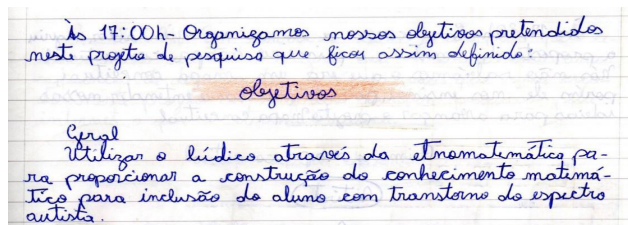 Às 17:00h - Organizamos nossos objetivos pretendidos
neste projeto de pesquisa que ficou assim definido:
objetivos
Geral
Utilizar o lúdico através da etnomatemática pa-
ra proporcionar a construção do conhecimento matemá-
tico para inclusão do aluno com transtorno do espectro
autista.